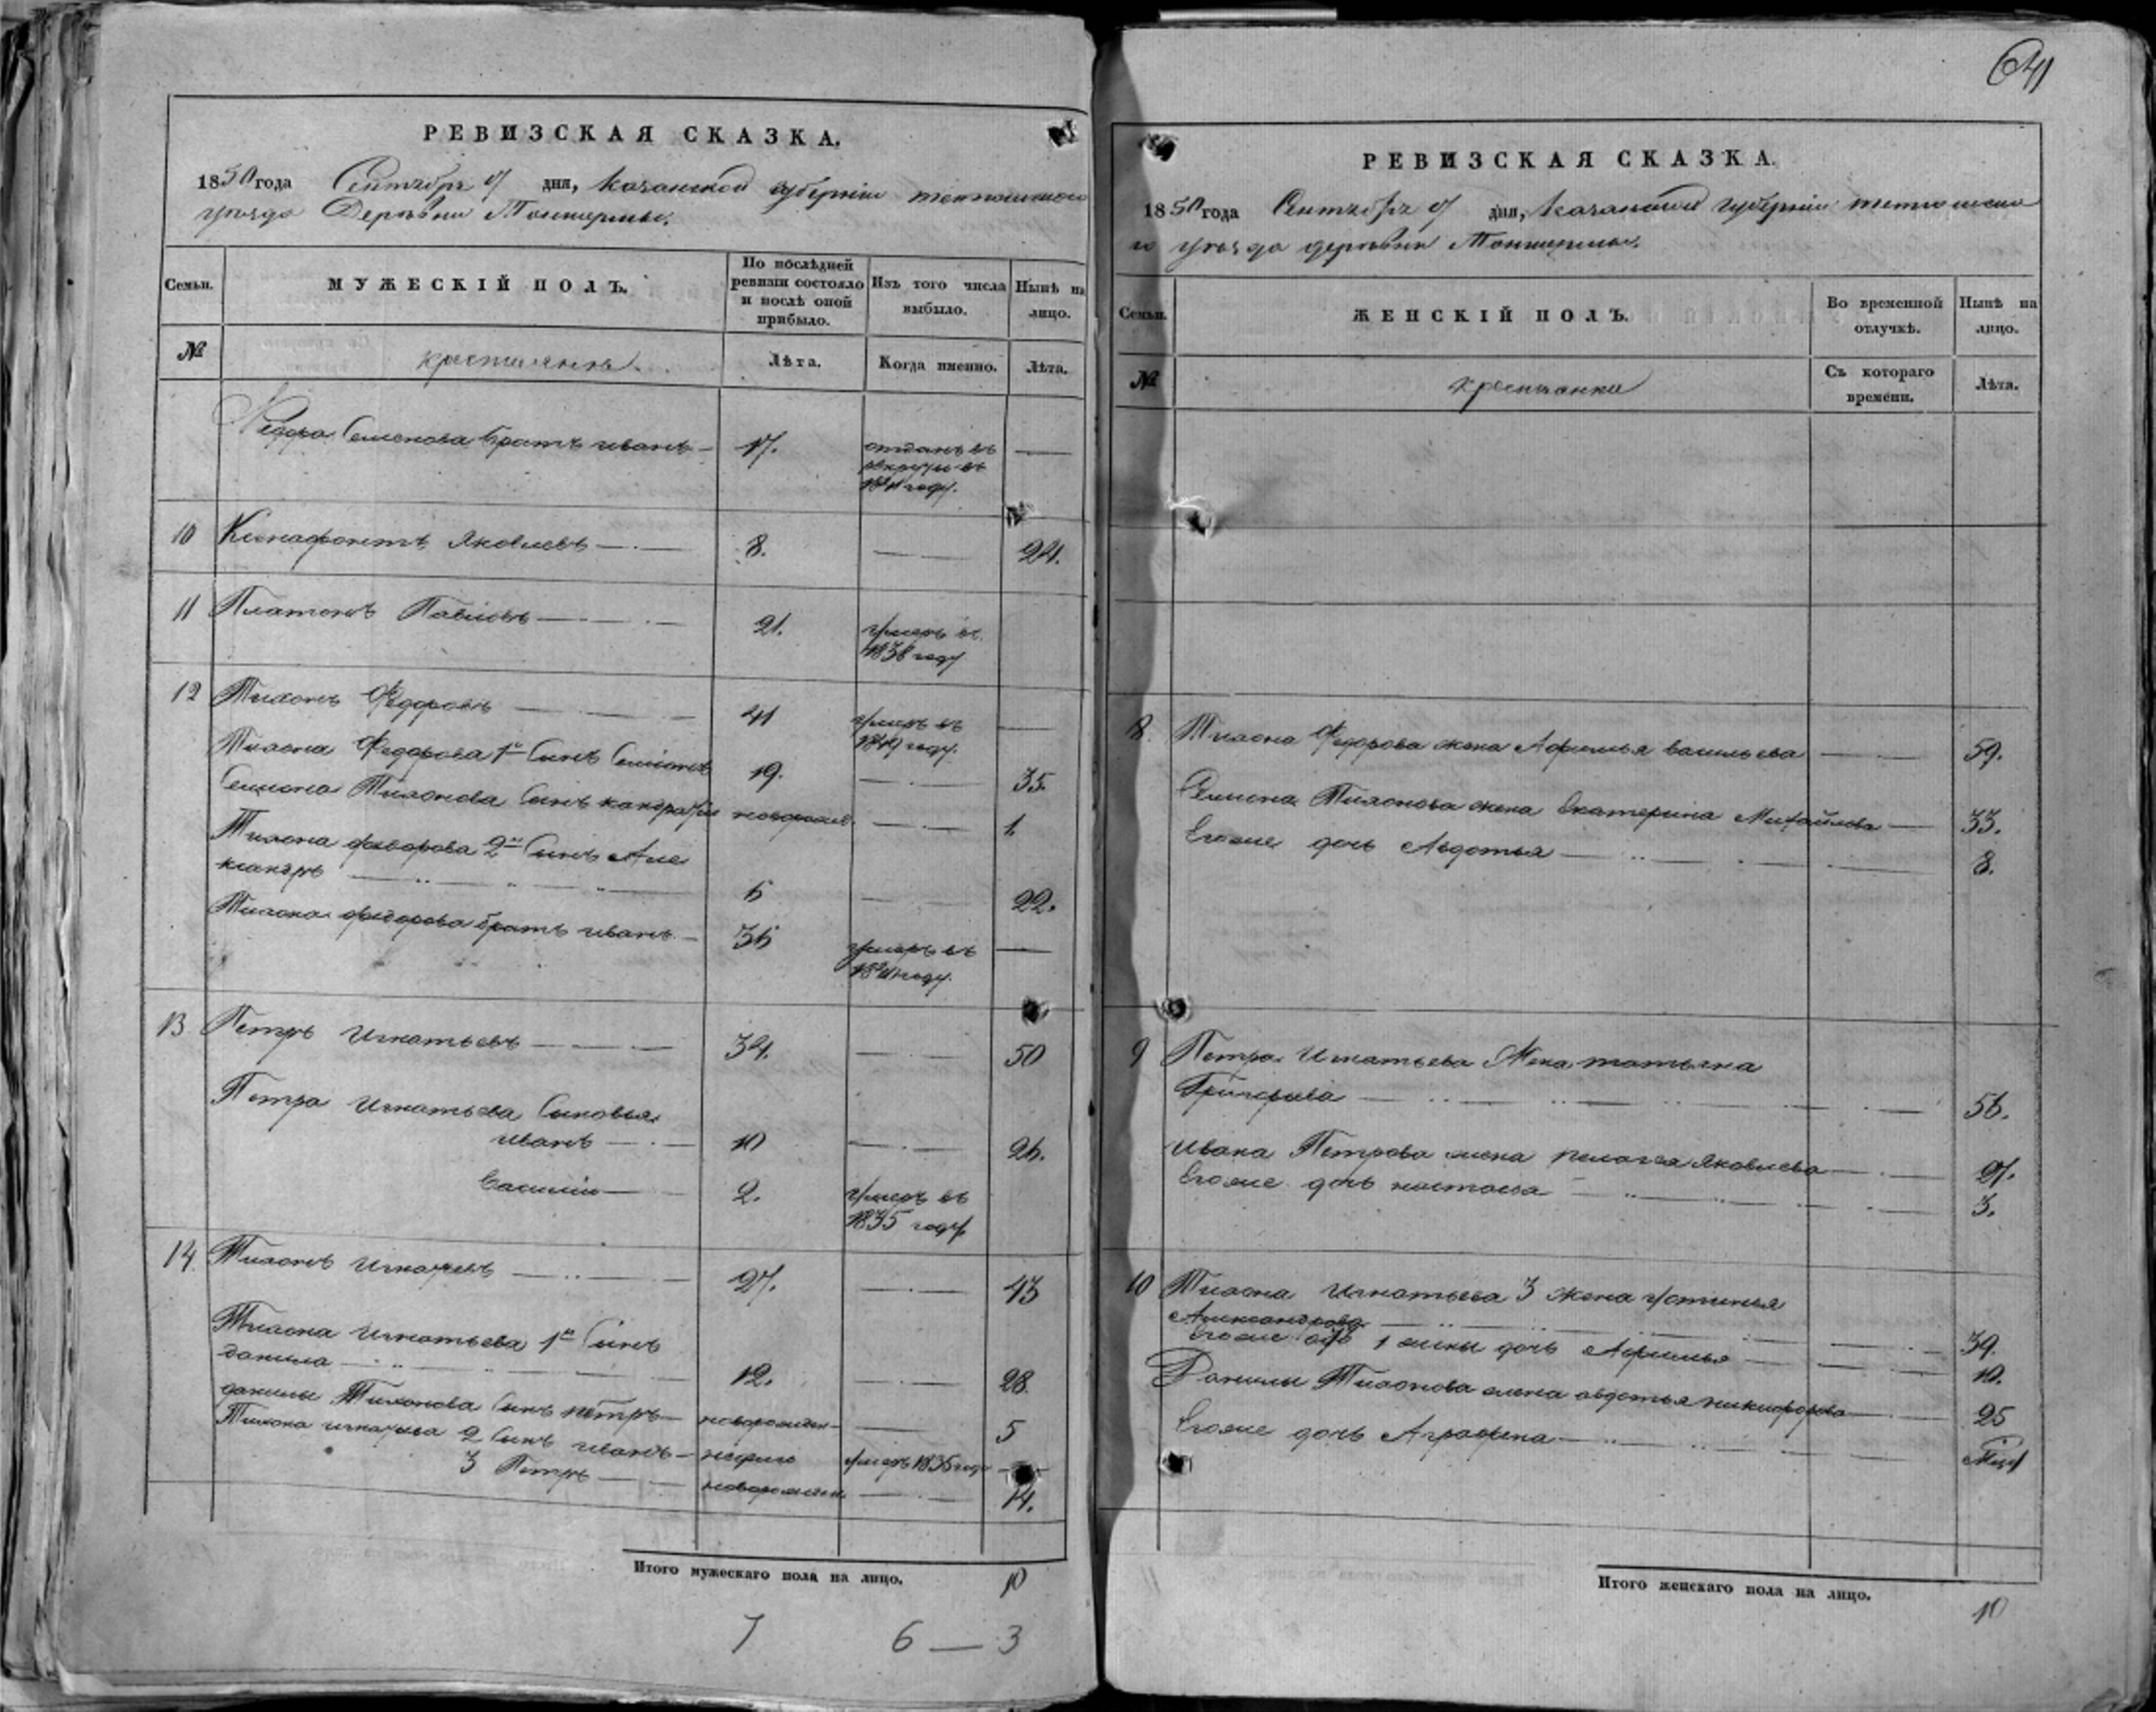 РЕВИЗСКАЯ СКАЗКА.
1850 года Сентября 9 дня, Казанской губернии тетюшскаго
уезда Деревни
Семьи. МУЖЕСКІЙ ПОЛЪ. По послѣдней ревизіи состояло и послѣ оной прибыло. Изъ того числа выбыло. Нынѣ на лицо.
№ крестьяне. Лѣта. Когда именно. Лѣта.
Федора Семенова братъ иванъ 17. отданъ въ
рекруты въ
году.
10 Яковлевъ 8. 24.
11 Платонъ Павловъ 21. умеръ въ
1838 году
12 Тихонъ Федоровъ 41 умеръ въ
1849 году.
Тихона Федорова 1й Сынъ Семионъ 19. 35.
Семиона Тихонова Сынъ кандратий новорожд. 1.
Тихона федорова 2й Сынъ Але
ксандръ 6 22.
Тихона федорова братъ иванъ 36 умеръ въ
году.
13 Петръ Игнатьевъ 34. 50
Петра Игнатьева Сыновья
иванъ 10 26.
Василий 2. умеръ въ
1835 году
14 Тихонъ Игнатьевъ 27. 43
Тихона Игнатьева 1й Сынъ
данила 12. 28.
данилы Тихонова Сынъ петръ новорожден 5
Тихона игнатьева 2 Сынъ иванъ умеръ 1835 году
3 Петръ новорожден. 14.
Итого мужескаго пола на лицо. 10
7 6 — 3
641
РЕВИЗСКАЯ СКАЗКА.
1850 года Сентября 9 дня, Казанской губернии тетюшска
го уезда деревни
Семьи. ЖЕНСКІЙ ПОЛЪ. Во временной отлучкѣ. Нынѣ на лицо.
№ крестьянки Съ котораго времени. Лѣта.
8. Тихона Федорова жена Афимья васильева 59.
Семиона Тихонова жена Екатерина Михайлова 33.
Егоже дочь Авдотья 8.
9 Петра Игнатьева Жена татьяна
Григорьева 56.
Ивана Петрова жена пелагея Яковлева 27.
Егоже дочь настасья 3.
10 Тихона Игнатьева 3 жена Устинья
Александрова 39.
Егоже отъ 1 жены дочь Афимья 10.
Данилы Тихонова жена авдотья никифорова 25
Егоже дочь Аграфена
Итого женскаго пола на лицо.
10